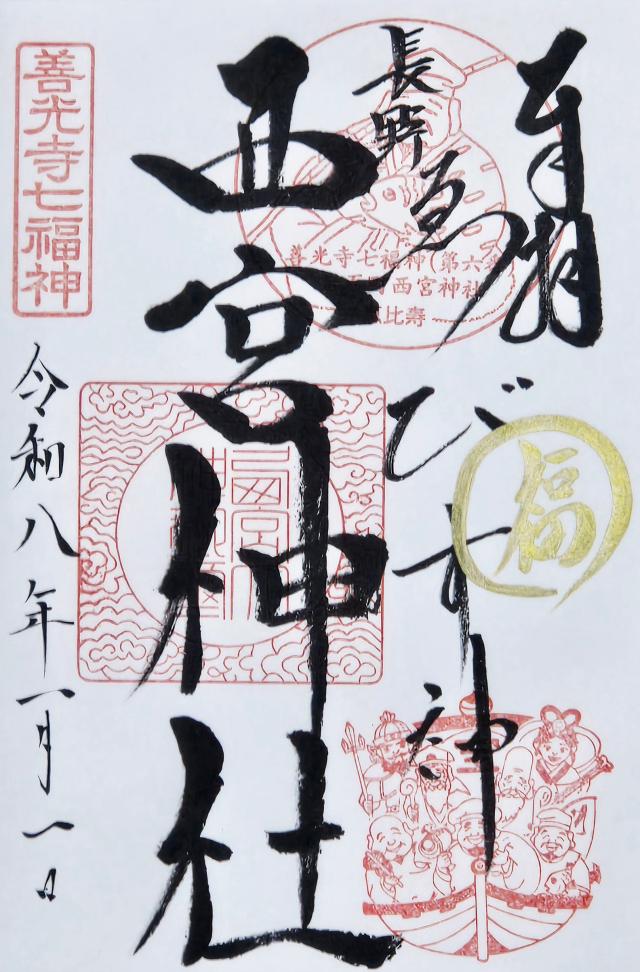 奉拝
長野
ゑびす神
西宮神社
令和八年一月一日
善光寺七福神
善光寺七福神(第六
西宮神社
比寿
福